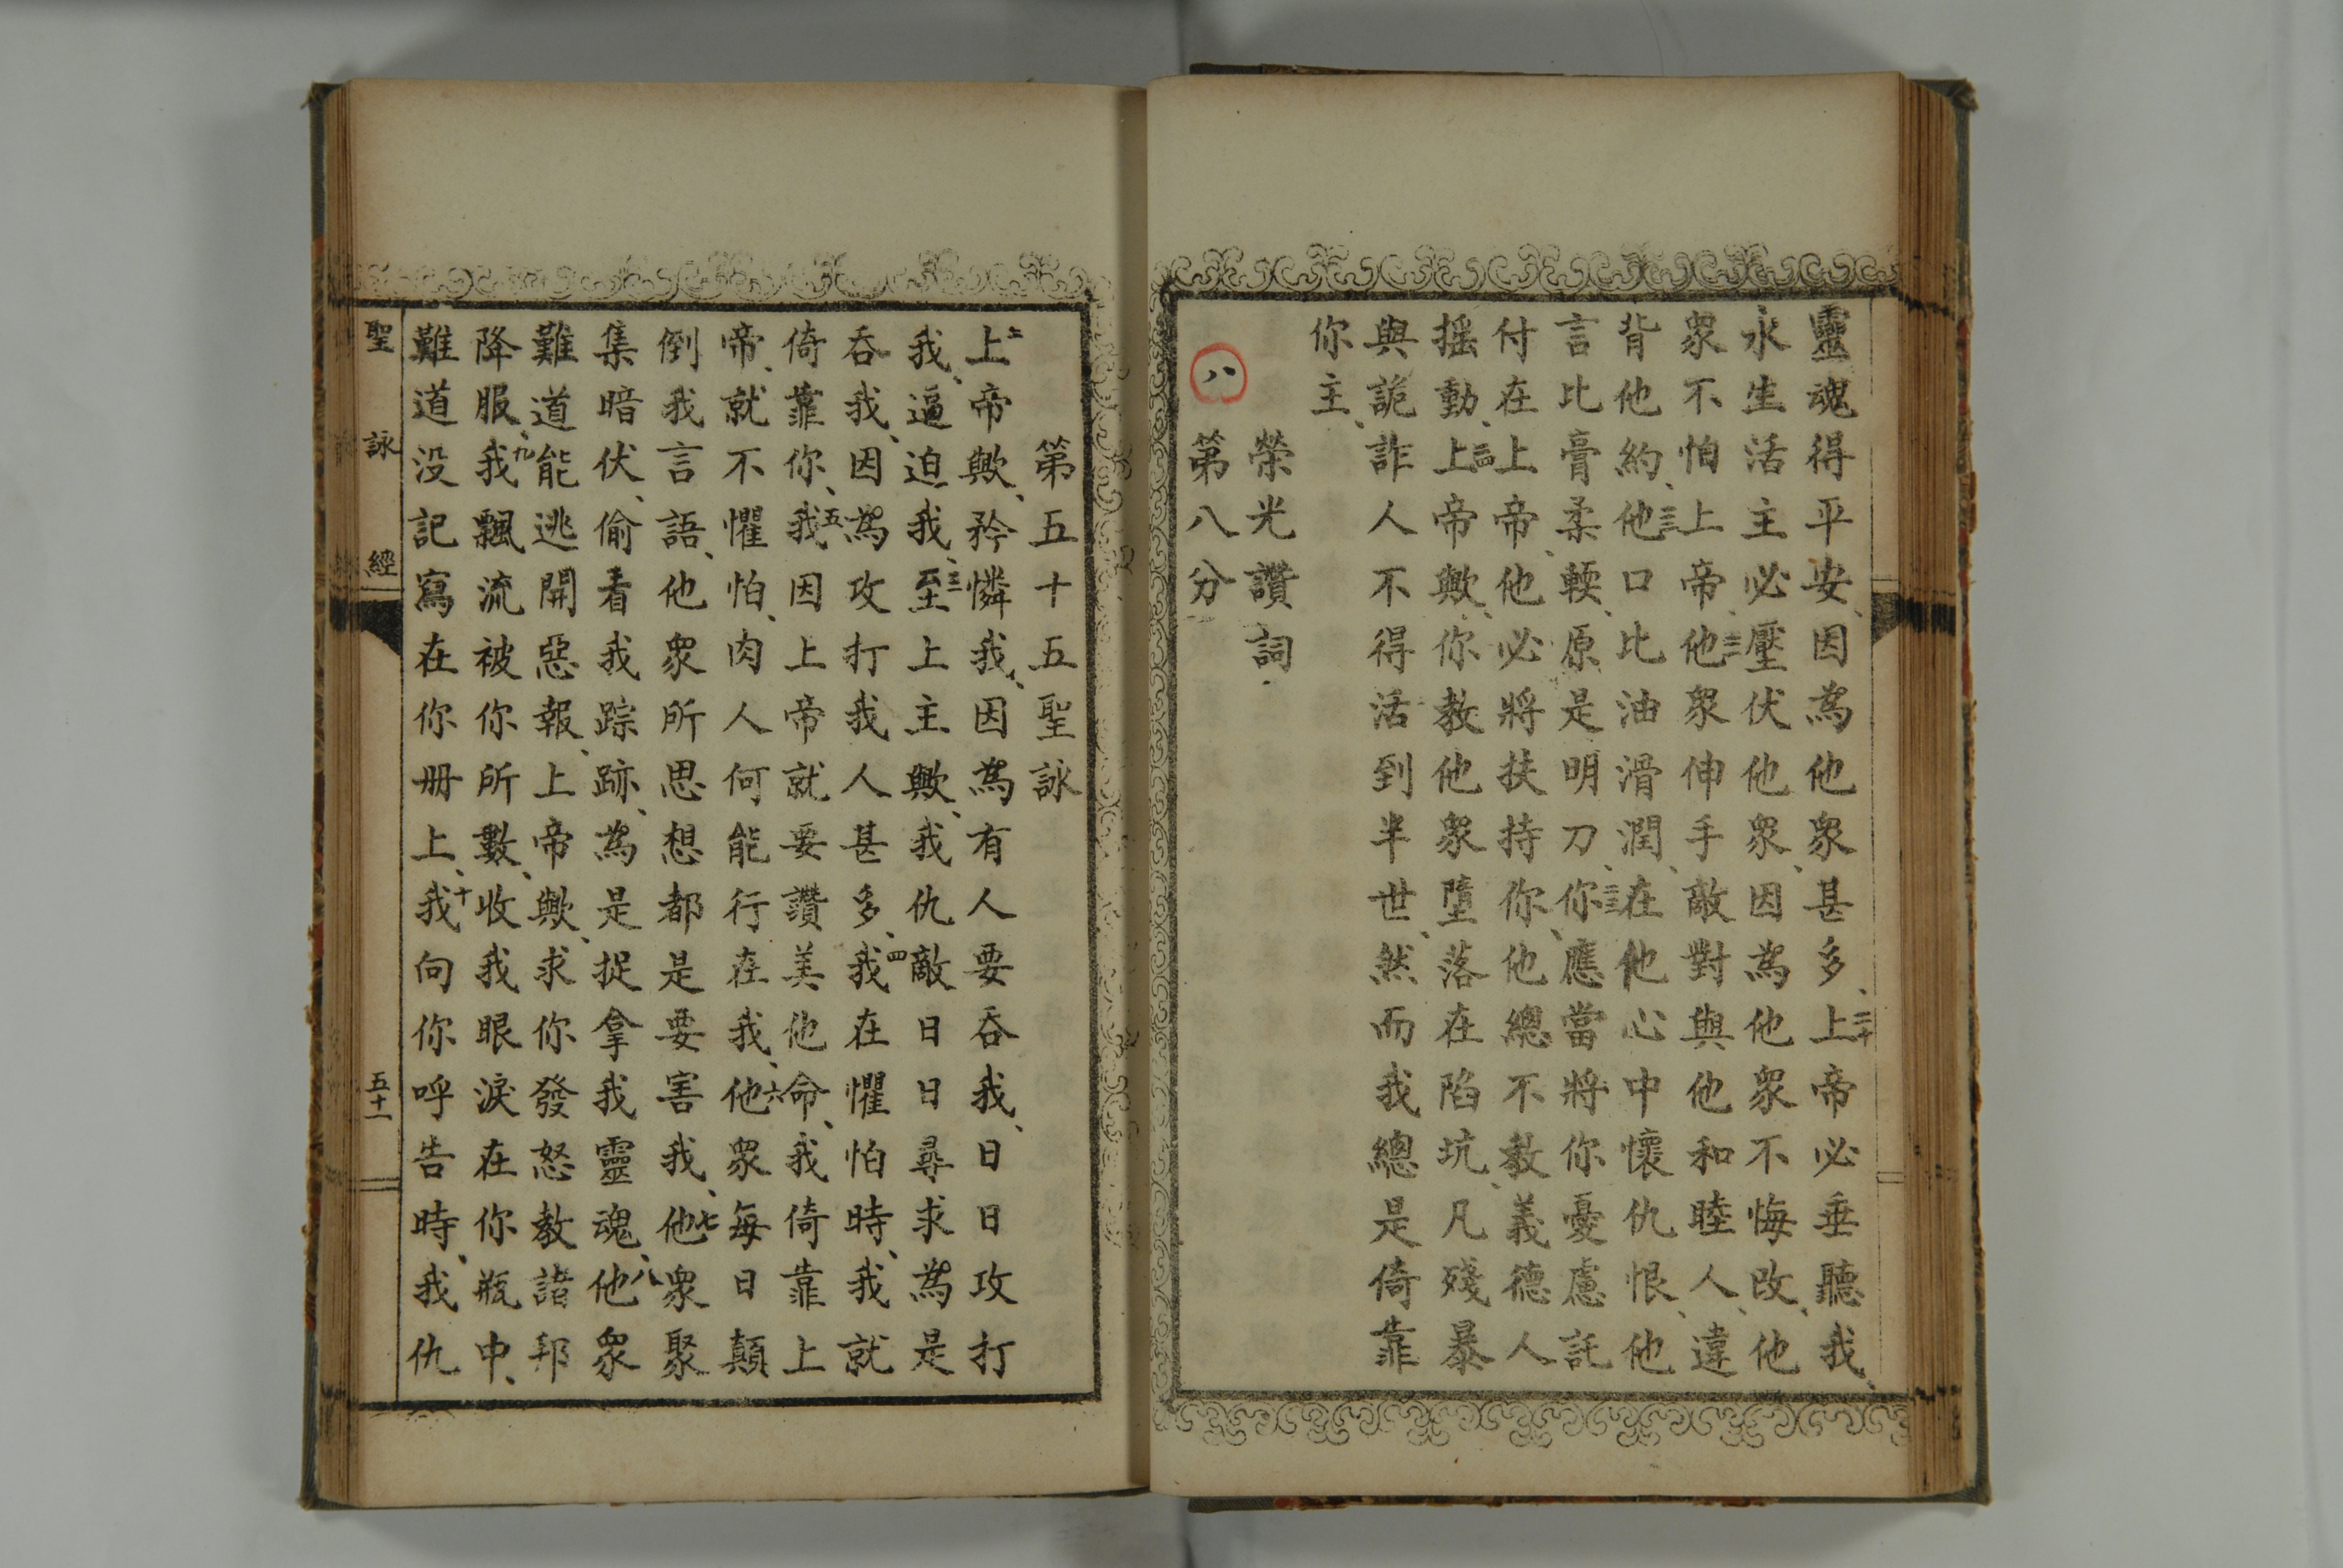 靈魂得平安、因為他衆甚多、三十上帝必垂聽我、
永生活主必壓伏他衆、因為他衆不悔改、他
衆不怕上帝、三一他衆伸手敵對與他和睦人、違
背他約、三二他口比油滑潤、在他心中懷仇恨、他
言比膏柔輭、原是明刀、三三你應當將你憂慮託
付在上帝、他必將扶持你、他總不教義德人
摇動、三四上帝歟、你教他衆墮落在陷坑、凡殘暴
與詭詐人不得活到半世、然而我總是倚靠
你主、
榮光讚詞
八
第八分
第五十五聖詠
二上帝歟、矜憐我、因為有人要吞我、日日攻打
我、逼迫我、三至上主歟、我仇敵日日尋求為是
吞我、因為攻打我人甚多、四我在懼怕時、我就
倚靠你、五我因上帝就要讚美他命、我倚靠上
帝、就不懼怕、肉人何能行在我、六他衆每日顛
倒我言語、他衆所思想都是要害我、七他衆聚
集暗伏、偷看我踪跡、為是捉拿我靈魂、八他衆
難道能逃開惡報、上帝歟、求你發怒教諸邦
降服、九我飄流被你所數、收我眼淚在你瓶中、
難道没記寫在你册上、十我向你呼告時、我仇
聖詠經
五十一